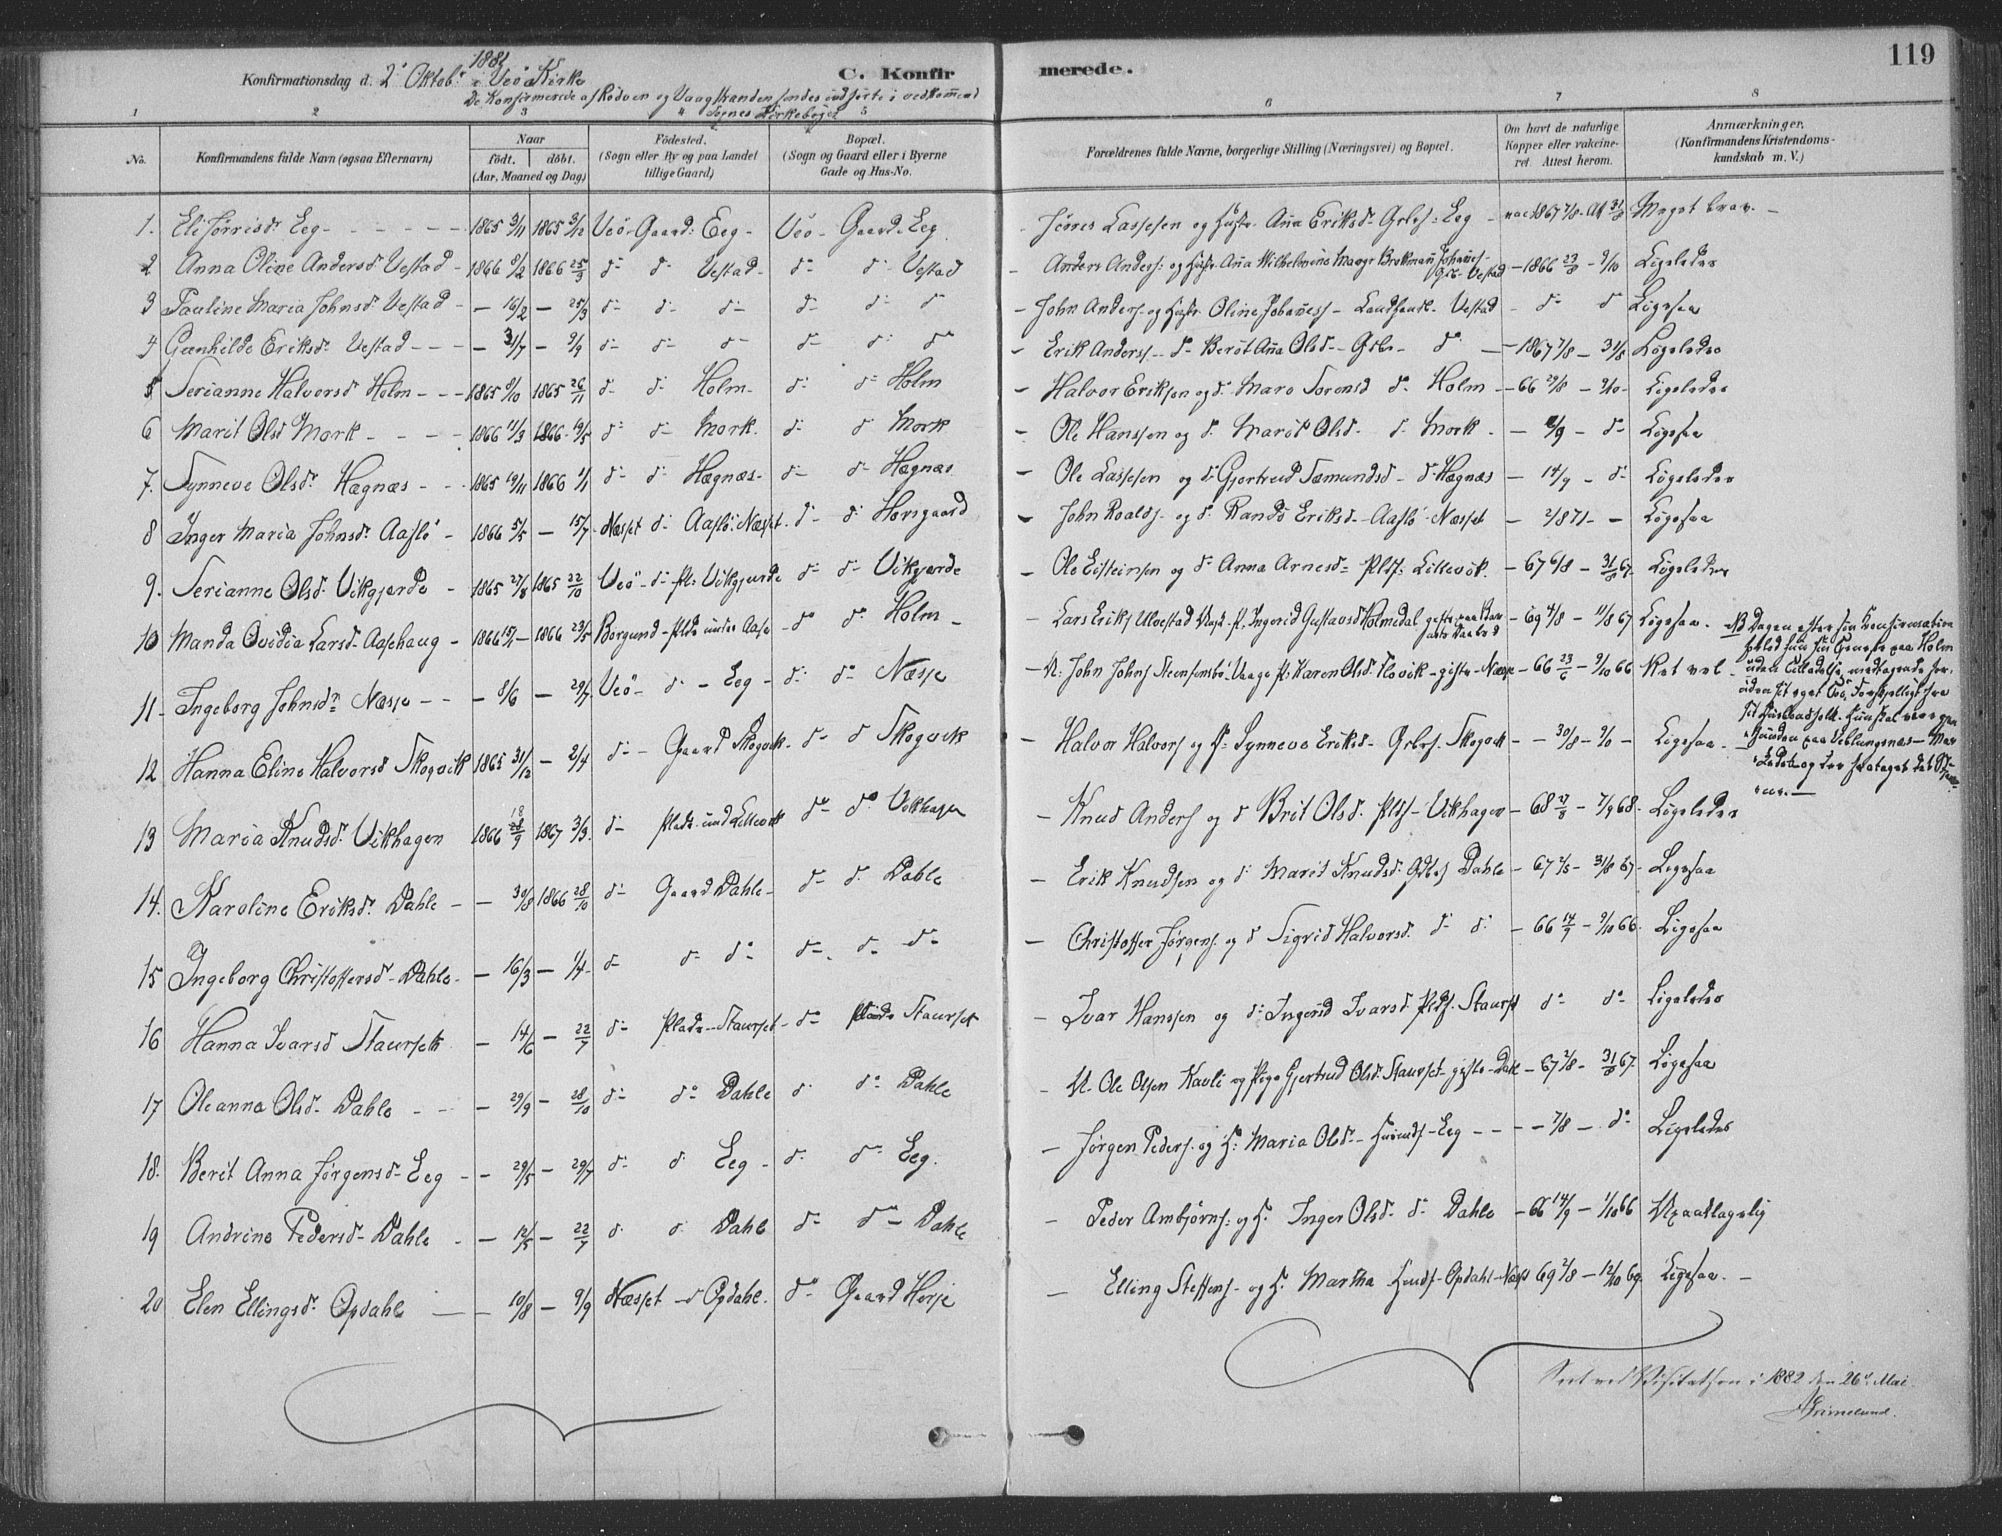 119
1881
Konfirmationsdag d. 2den Oktobr i Veø Kirke C. Konfirmerede.
De Konfirmerede af Rødven og Vaagstranden findes indførte i vedkommende
Sognes Kirkebøger
1 2 3 4 5 6 7 8
No. Konfirmandens fulde Navn (ogsaa Efternavn) Naar født. døbt. (Aar, Maaned og Dag) Fødested. (Sogn eller By og paa Landet tillige Gaard) Bopæl. (Sogn og Gaard eller i Byerne Gade og Hus-No. Forældrenes fulde Navne, borgerlige Stilling (Næringsvei) og Bopæl. Om havt de naturlige Kopper eller vaccineret. Attest herom. Anmærkninger. (Konfirmandens Kristendomskundskab m. V.)
1. Eli Jørrisdr Eeg - 1865 3/11 1865 3/12 Veø - Gaard: Eeg - Veø - Gaard: Eeg - Jørris Lassesen og Hustr. Ana Eriksdr Grbr: Eeg - vac 1867 7/8 - At 31/8 Meget brav. -
2 Anna Oline Andersd Vestad - 1866 9/2 1866 25/3 d- d- Vestad - d- d- Vestad - Anders Anders: og Hustr. Ana Wilhelmine Margr Brokman Johanes- Gbr. Vestad - 1866 23/8 - 9/10 Ligeledes
3 Pauline Maria Johnsd Vestad - - 16/2 - 25/3 d- d- d- d- d- d - John Anders- og Hustr Oline Johaness- Landhandl. Vestad - d- d Ligesaa
4 Gunhilde Eriksdr Vestad - - - - 31/7 - 9/9 d- d- d- d- d- do - Erik Anderss - d- Berit Ana Olsd - Grbr - d - 1867 7/8 - 31/8 Ligeledes
5 Serianne Halvorsd Holm - - 1865 9/10 1865 26/11 d- d- Holm - d- d- Holm - Halvor Eriksen og d- Mare Sorensd d- Holm - 66 29/8 - 9/10 - Ligeledes
6 Marit Olsd Mork - - - - 1866 11/3 1866 - 19/5 d- d- Mork. d- d Mork - Ole Hanssen og d- Marit Olsd - d- Mork - - 2/9 - d- Ligesaa
7. Synneve Olsdr Hægnæs - - 1865 19/11 1866 1/1 d- d- Hægnæs - d- d- Hægnæs - Ole Lassesen og d- Gjertrud Samundsd - d- Hægnæs - 14/9 - d- Ligeledes
8 Inger Maria Johnsdr Aaslø - 1866 5/5 - 15/7 - Næsset d- Aaslø: Næsset - d- d- Horsgaard - John Roalds- og d- Randi Eriksd - Aaslø - Næsset - 2/8 71 - - Ligesaa
9. Serianne Olsd Vikgjerde - 1865 27/8 1865 22/10 Veø - d- Pl: Vikgjerde d- d- Vikgjerde - Ole Eisteinsen og d- Anna Arnesd - Plds: Lillevik. - 67 6/8 - 31/8 67 - Ligeledes
10 Manda Ovidia Larsd - Aasehaug - 1866 15/ - 1866 23/5 Borgund - Plads under Aase - do do Holm - - Lars Eriks Ulvestad Ingerid Gustavsd Holmedal gifte - 69 4/8 - 11/8 67 Ligesaa.
11. Ingeborg Johnsdr Næsje - - - 8/6 - 29/7 Veø - d- - Eeg - d- do Næsje - U: John Johns Steensembø - Vaage P: Karen Olsd. Flovik - gifte - Næsje - 66 23/6 - 9/10 66 Ret vel -
12 Hanna Eline Halvorsd Skogvik 1865 31/12 - 2/4 d- Gaard Skogvik - d- d Skogvik - Halvor Halvors og H- Synneve Eriksd - Grbr. Skogvik - - 30/8 - 9/10 - Ligesaa. -
13 Maria Knudsdr Vikhagen 1866 28/9 18 1867 3/3 d- Plads und Lillevik do do Vikhagen - Knud Anders og d Brit Olsd. Plds - Vikhagen - 68 27/8 - 7/9 68. Ligeledes
14. Karoline Eriksdr Dahle - - 30/8 1866 28/10 d- Gaard Dahle - d- d. Dahle - Erik Knudsen og d- Marit Knudsdr Gdbr Dahle - 67 2/8 - 31/8 67 - Ligesaa
15 Ingeborg Christoffersd - Dahle - - 16/3 - 1/4 - d- d- do d- d- d- - Christoffer Jørgens. og d Sigrid Halvorsd. d- d- - 66 14/7 - 9/10 66. Ligesaa
16 Hanna Ivarsd Staurset - 14/6 - 22/7 d- Plads - Staurset - do Plads Staurset - Ivar Hanssen og d- Ingerid Ivarsd Plds. Staurset do do Ligeledes
17 Oleanna Olsd - Dahle - - - 29/9 - 28/10 d- do Dahle d. do Dahle - U. Ole Olsen Kavli og Pige Gjertrud Olsd. Staurset - gifte - Dahl - 67 2/8 - 31/8 67. Ligesaa
18. Berit Anna Jørgensd - Eeg - - 29/5 - 29/7 d- d. Eeg - d- do Eeg. - Jørgen Peders. og H: Maria Olsd - - Eeg - - - - 7/8 - do Ligeledes
19 Andrine Pedersd - Dahle. - - 12/5 - 22/7 d. d. Dahle d- do - Dahle - Peder Ambjørns: og H. Inger Olsd - d- Dahle - 66 14/9 - 1/10 66 Upaaklagelig
20 Elen Ellingsdr Opdahl - - 10/8 - 9/9 Næsset - d Opdahl. do Gaard Horje - Elling Steffens - og H. Martha - Opdahl - Næss 69 2/8 - 12/10 69. Ligesaa. -
NB Dagen efter sin Konfirmation
forlod hun sin Tjeneste paa Holm
uden Tilladelse, medtagende for-
uden sit eget Tøi, Forskjelligt fra
sit Husbondfolk. Hun skal være
funden paa Veblungsnæs -
Seet ved Visitatsen i 1882 den 26d Mai.
AGrimelund.